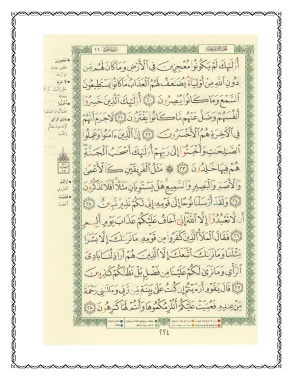 أُولَٰئِكَ لَمْ يَكُونُوا مُعْجِزِينَ فِي الْأَرْضِ وَمَا كَانَ لَهُم مِّن
دُونِ اللَّهِ مِنْ أَوْلِيَاءَ يُضَاعَفُ لَهُمُ الْعَذَابُ مَا كَانُوا يَسْتَطِيعُونَ
السَّمْعَ وَمَا كَانُوا يُبْصِرُونَ ٢٠ أُولَٰئِكَ الَّذِينَ خَسِرُوا
أَنفُسَهُمْ وَضَلَّ عَنْهُم مَّا كَانُوا يَفْتَرُونَ ٢١ لَا جَرَمَ أَنَّهُمْ
فِي الْآخِرَةِ هُمُ الْأَخْسَرُونَ ٢٢ إِنَّ الَّذِينَ آمَنُوا وَعَمِلُوا
الصَّالِحَاتِ وَأَخْبَتُوا إِلَىٰ رَبِّهِمْ أُولَٰئِكَ أَصْحَابُ الْجَنَّةِ
هُمْ فِيهَا خَالِدُونَ ٢٣ مَثَلُ الْفَرِيقَيْنِ كَالْأَعْمَىٰ
وَالْأَصَمِّ وَالْبَصِيرِ وَالسَّمِيعِ هَلْ يَسْتَوِيَانِ مَثَلًا أَفَلَا تَذَكَّرُونَ
٢٤ وَلَقَدْ أَرْسَلْنَا نُوحًا إِلَىٰ قَوْمِهِ إِنِّي لَكُمْ نَذِيرٌ مُّبِينٌ ٢٥
أَن لَّا تَعْبُدُوا إِلَّا اللَّهَ إِنِّي أَخَافُ عَلَيْكُمْ عَذَابَ يَوْمٍ أَلِيمٍ
٢٦ فَقَالَ الْمَلَأُ الَّذِينَ كَفَرُوا مِن قَوْمِهِ مَا نَرَاكَ إِلَّا بَشَرًا
مِّثْلَنَا وَمَا نَرَاكَ اتَّبَعَكَ إِلَّا الَّذِينَ هُمْ أَرَاذِلُنَا بَادِيَ
الرَّأْيِ وَمَا نَرَىٰ لَكُمْ عَلَيْنَا مِن فَضْلٍ بَلْ نَظُنُّكُمْ كَاذِبِينَ
٢٧ قَالَ يَا قَوْمِ أَرَأَيْتُمْ إِن كُنتُ عَلَىٰ بَيِّنَةٍ مِّن رَّبِّي وَآتَانِي رَحْمَةً
مِّنْ عِندِهِ فَعُمِّيَتْ عَلَيْكُمْ أَنُلْزِمُكُمُوهَا وَأَنتُمْ لَهَا كَارِهُونَ ٢٨
٢٢٤